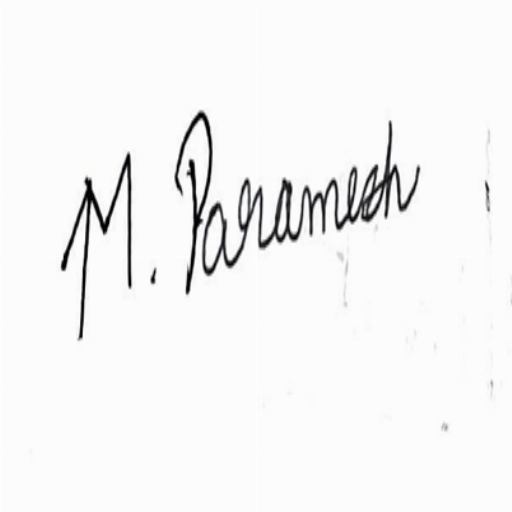 M. Paramesh